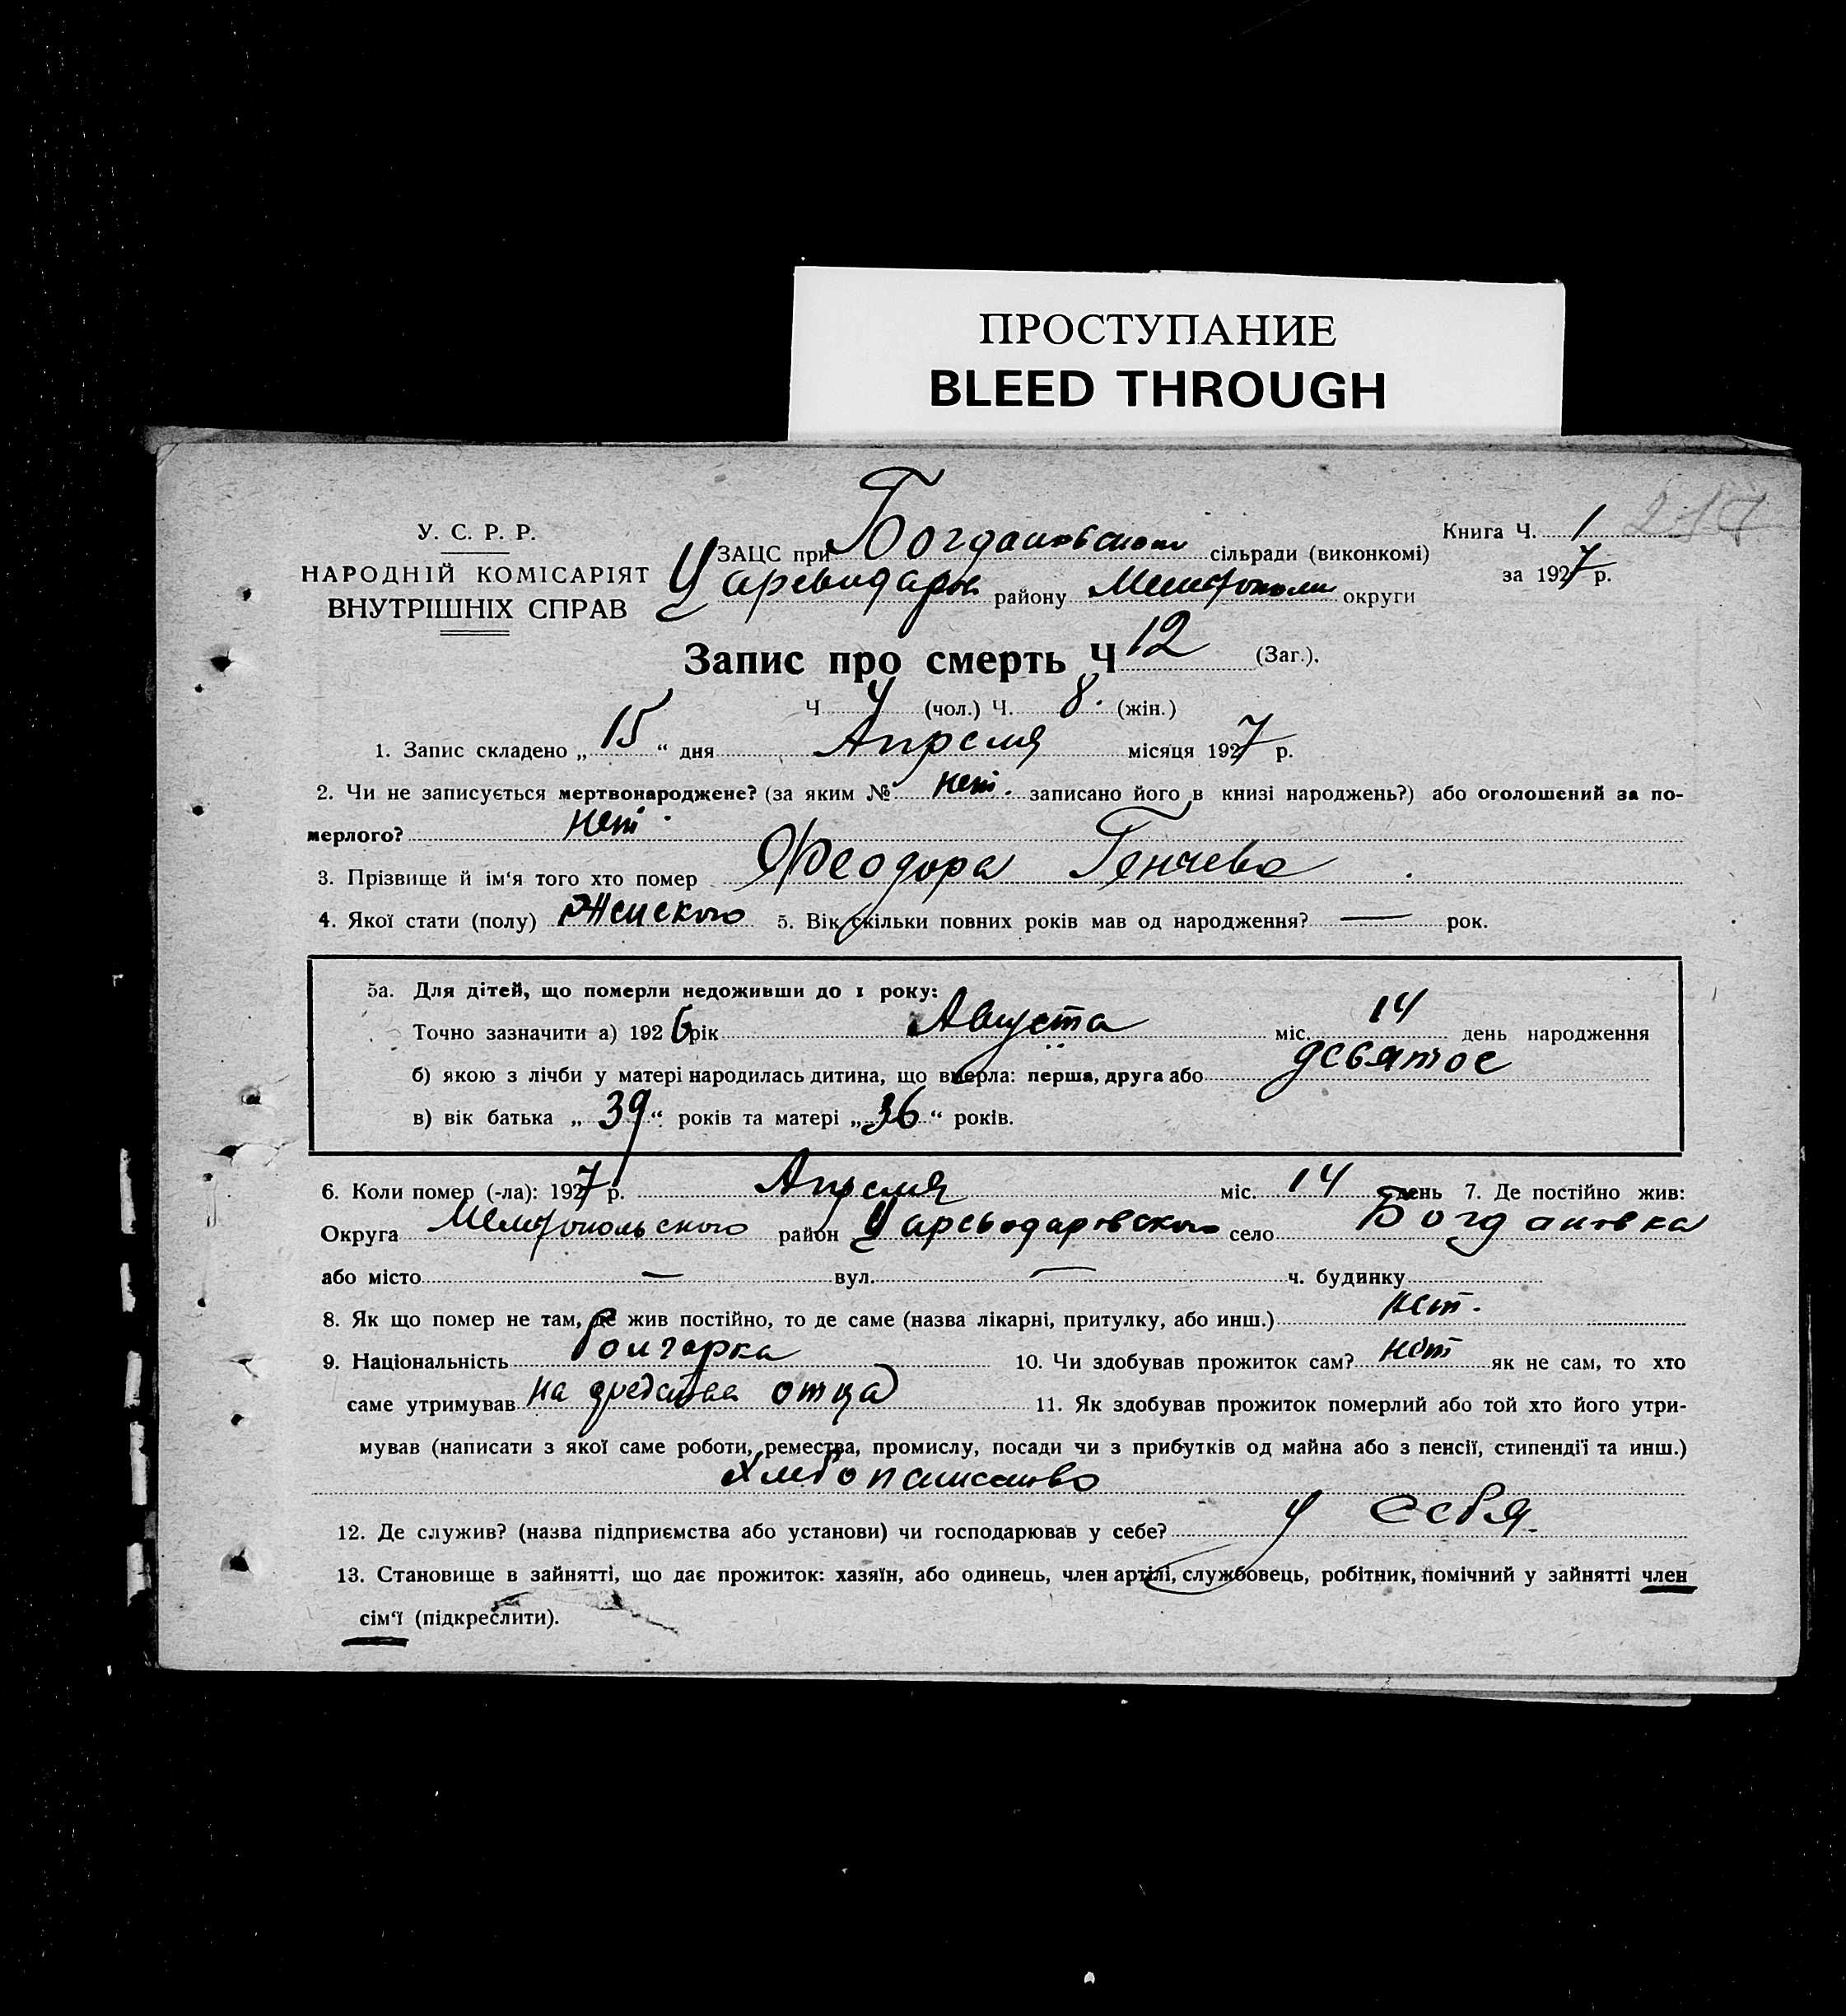 ПРОСТУПАНИЕ
BLEED THROUGH
У. С. Р. Р.
НАРОДНІЙ КОМІСАРІЯТ
ВНУТРІШНІХ СПРАВ
ЗАЦС при Богдановском сільради (виконкомі)
района Мелитополь округи
Книга Ч. 1
за 1927 р.
Запис про смерть Ч 12 (Заг.).
Ч 4 (чол.) Ч. 8. (жін.)
1. Запис складено „ 15 “ дня Апреля місяця 1927 р.
2. Чи не записується мертвонароджене? (за яким № нет. записано його в книзі народжень?) або оголошений за по-
мерлого? нет.
3. Прізвище й ім‘я того хто помер Феодора Генчева
4. Якої стати (полу) Женского 5. Вік скільки повних років мав од народження? — рок.
5а. Для дітей, що померли недоживши до 1 року:
Точно зазначити а) 1926 рік Августа міс. 14 день народження
б) якою з лічби у матері народилась дитина, що вмерла: перша, друга або девятое
в) вік батька „ 39 “ років та матері „ 36 “ років.
6. Коли помер (-ла): 1927 р. Апреля міс. 14 день 7. Де постійно жив:
Округа Мелитопольского район Цареводаровского село Богдановка
або місто — вул. — ч. будинку
8. Як що помер не там, де жив постійно, то де саме (назва лікарні, притулку, або инш.) нет.
9. Національність болгарка 10. Чи здобував прожиток сам? нет як не сам, то хто
саме утримував на средства отца 11. Як здобував прожиток померлий або той хто його утри-
мував (написати з якої саме роботи, ремества, промислу, посади чи з прибутків од майна або з пенсії, стипендії та инш.)
хлебопашество
12. Де служив? (назва підприємства або установи) чи господарював у себе? у себя.
13. Становище в зайнятті, що дає прожиток: хазяїн, або одинець, член артілі, службовець, робітник, помічний у зайнятті член
сім‘ї (підкреслити).